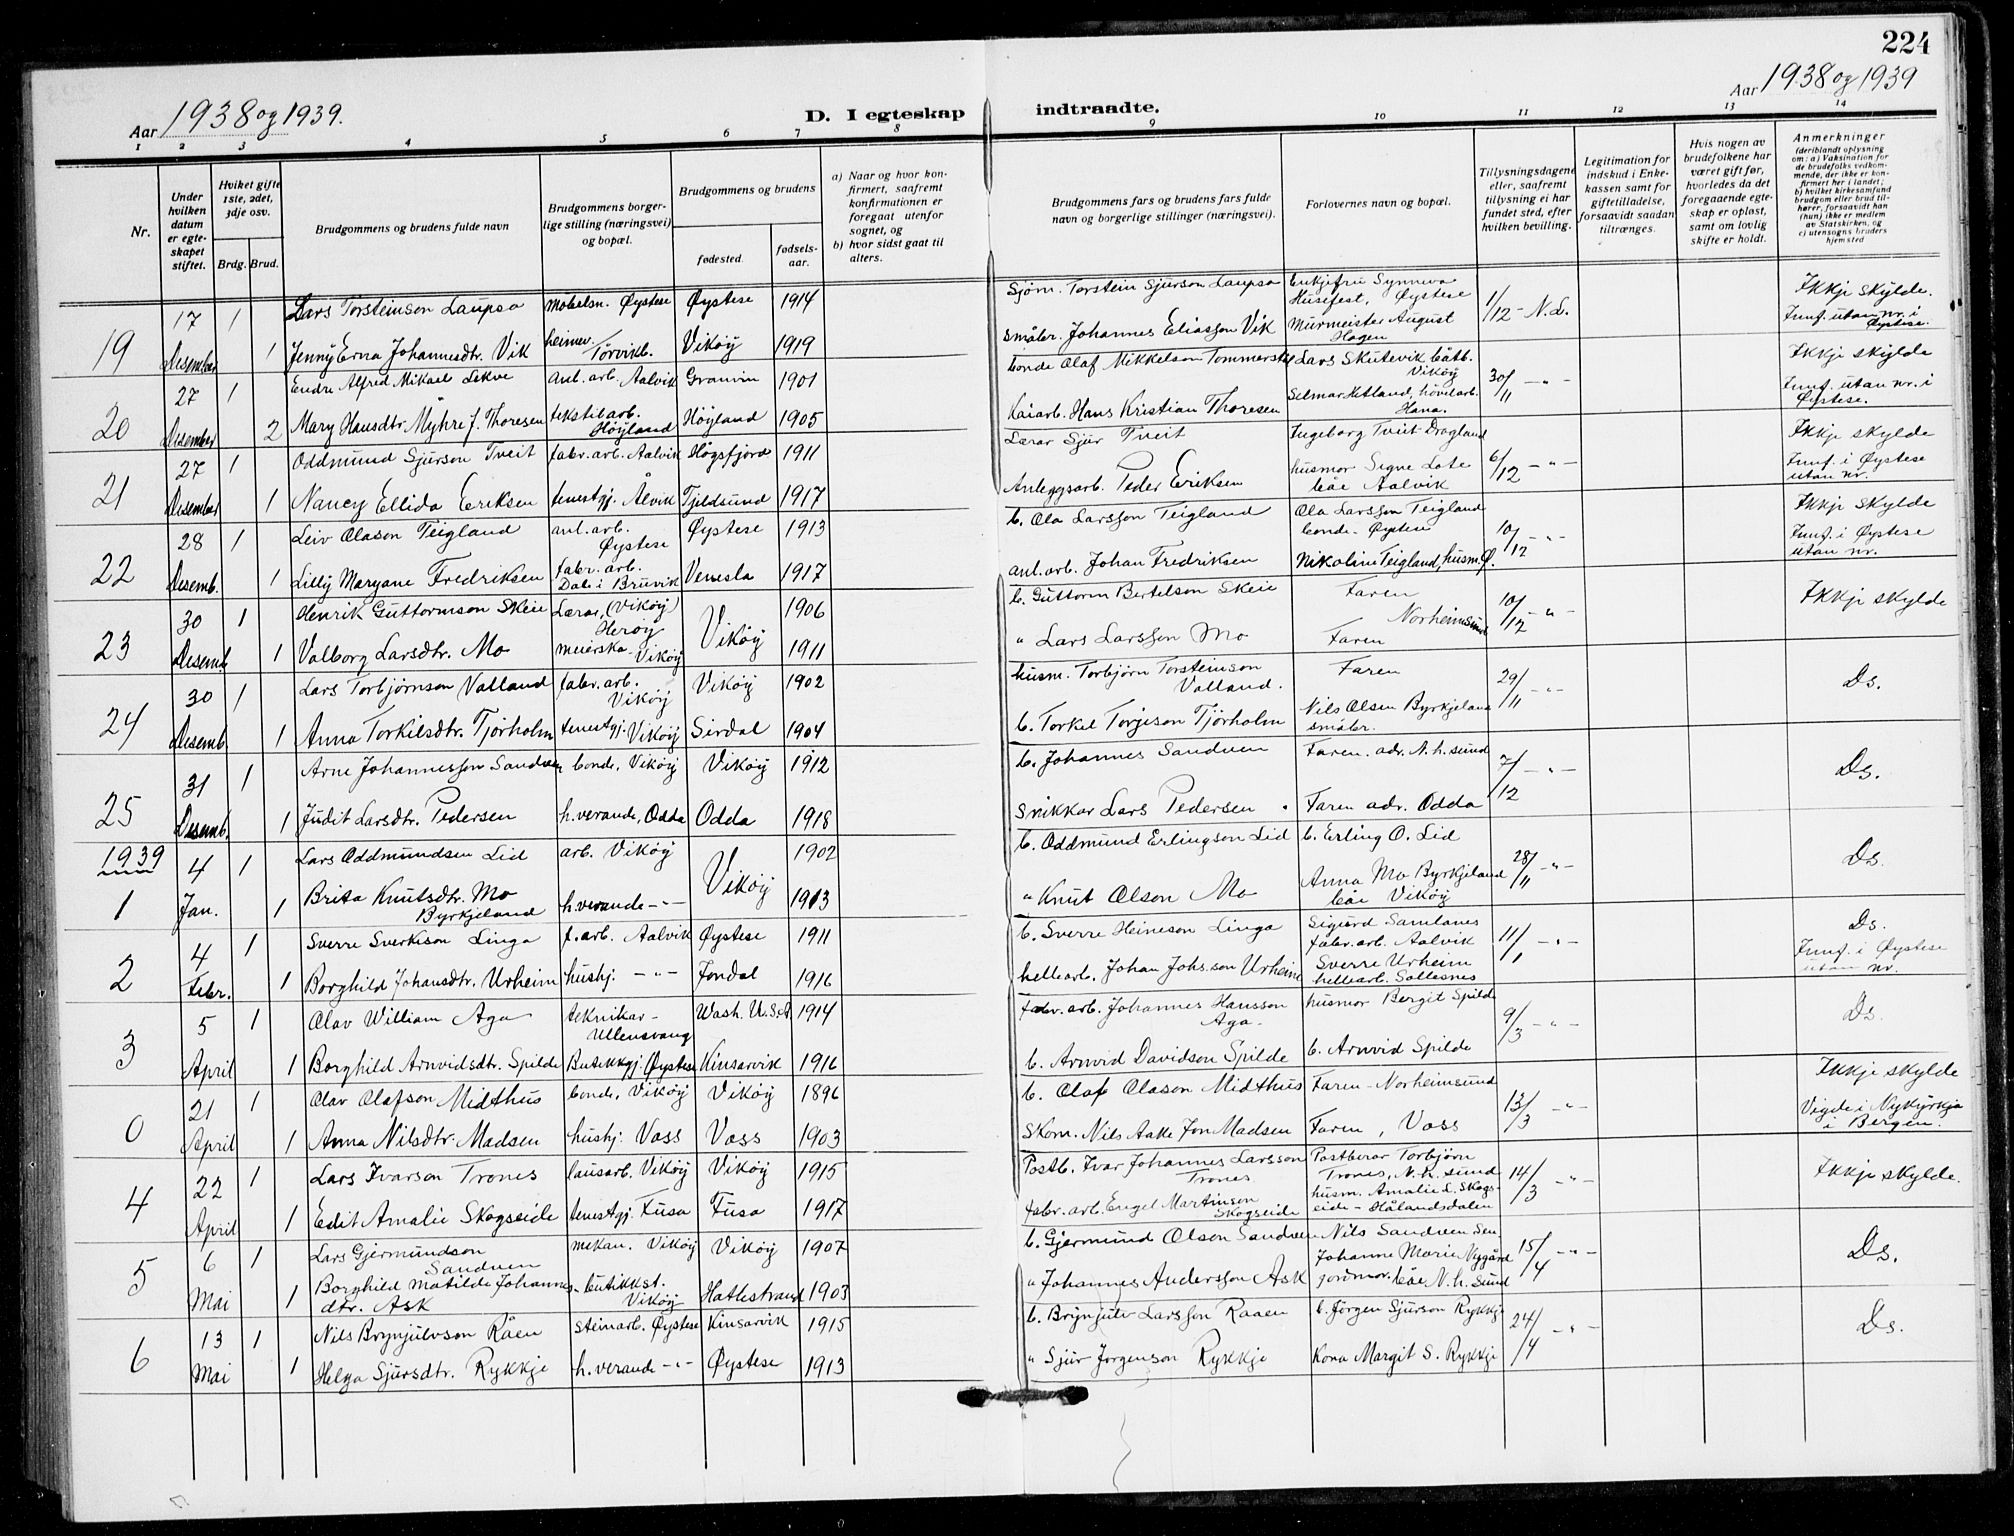 224
Aar 1938 og 1939.
D. I egteskap indtraadte.
Aar 1938 og 1939
1 2 3 4 5 6 7 8 9 10 11 12 13 14
Nr.
Under hvilken datum er egteskapet stiftet.
Hvilket gifte 1ste, 2det, 3dje osv.
Brdg. Brud.
Brudgommens og brudens fulde navn
Brudgommens borgerlige stilling (næringsvei) og bopæl.
Brudgommens og brudens
fødested.
fødselsaar.
a) Naar og hvor konfirmert, saafremt konfirmationen er foregaat utenfor sognet, og
b) hvor sidst gaat til alters.
Brudgommens fars og brudens fars fulde navn og borgerlige stillinger (næringsvei).
Forlovernes navn og bopæl.
Tillysningsdagene eller, saafremt tillysning ei har fundet sted, efter hvilken bevilling.
Legitimation for indskud i Enkekassen samt for giftetilladelse, forsaavidt saadan tiltrænges.
Hvis nogen av brudefolkene har været gift før, hvorledes da det foregaaende egteskap er opløst, samt om lovlig skifte er holdt.
Anmerkninger
(deriblandt oplysning om: a) Vaksination for de brudefolks vedkommende, der ikke er konfirmert her i landet; b) hvilket kirkesamfund brudgom eller brud tilhører, forsaavidt han (hun) ikke er medlem av Statskirken, og c) utensogns bruders hjemsted
19 17 Desember 1 Lars Torsteinson Laupsa Møbelsn. Øystese Øystese 1914 Sjøm. Torstein Sjurson Laupsa Enkjefru Synneva Husefest, Øystese 1/12 - N.L. Ikkje skylde.
1 Jenny Erna Johannesdtr. Vik heimev. Torvikb. Vikøy 1919 småbr. Johannes Eliasson Vik Murmeister August Hagen Innf. utan nr. i Øystese.
20 27 Desember 1 Endre Alfred Mikael Lekve Anl. arb. Aalvik Granvin 1901 bonde Olaf Mikkelson Tommerstø Lars Skutevik båtb. Vikøy 30/11 -"- Ikkje skylde
2 Mary Hansdtr. Myhre f. Thoresen tekstilarb. Höyland Höyland 1905 Kaiarb. Hans Kristian Thoresen Selmar Hetland, hövelarb. Hana. Innf. utan nr. i Øystese.
21 27 Desember 1 Oddmund Sjurson Tveit fabr. arb. Aalvik Høgsfjord 1911 Lærar Sjur Tveit Ingeborg Tveit Dragland 6/12 -"- Ikkje skylde
1 Nancy Ellida Eriksen tenestgj. Ålvik Tjeldsund 1917 Anleggsarb. Peder Eriksen husmor Signe Lote båe Aalvik Innf. i Øystese utan nr.
22 28 Desemb. 1 Leiv Olason Teigland anl. arb. Øystese Øystese 1913 b. Ola Larsson Teigland Ola Larsson Teigland bonde - Øystese 10/12 -"- Ikkje skylde
1 Lilly Maryane Fredriksen fabr. arb. Dale i Bruvik Venesla 1917 anl. arb. Johan Fredriksen Nikoline Teigland, husm. Ø. Innf. i Øystese utan nr.
23 30 Desemb. 1 Henrik Guttormson Skeie Lærar, (Vikøy) Herøy Vikøy 1906 b. Guttorm Bertelson Skeie Faren Norheimsund 10/12 -"- Ikkje skylde
1 Valborg Larsdtr. Mo meierska Vikøy 1911 " Lars Larsson Mo Faren
24 30 Desemb. 1 Lars Torbjørnson Valland fabr. arb. Vikøy Vikøy 1902 husm. Torbjørn Torsteinson Valland. Faren 29/11 -"- Ds.
1 Anna Torkilsdtr. Tjørholm tenestgj. Vikøy Sirdal 1904 b. Torkel Torjeson Tjörholm Nils Olsen Byrkjeland småbr.
25 31 Desemb. 1 Arne Johannesson Sandven bonde, Vikøy Vikøy 1912 b. Johannes Sandven Faren. adr. N.h.sund 7/12 -"- Ds.
1 Judit Larsdtr. Pedersen h. verande, Odda Odda 1918 Snikkar Lars Pedersen Faren adr. Odda
1939
1 4 Jan. 1 Lars Oddmundsen Lid arb. Vikøy Vikøy 1902 b. Oddmund Erlingson Lid b. Erling O. Lid 28/11 -"- Ds.
1 Brita Knutsdtr. Mo Byrkjeland h. verande -"- 1913 " Knut Olson Mo Anna Mo Byrkjeland båe Vikøy
2 4 Febr. 1 Sverre Sverkison Linga f. arb. Aalvik Øystese 1911 b. Sverre Heineson Linga Sigurd Samlanes fabr. arb. Aalvik 11/1 -"- Ds.
1 Borghild Johansdtr. Urheim hushj. -"- Jondal 1916 hellearb. Johan Johs.son Urheim Sverre Urheim hellearb. Solesnes Innf. i Øystese utan nr.
3 5 April 1 Olav William Aga teknikar - Ullensvang Wash. U.S.A. 1914 fabr. arb. Johannes Hansson Aga - husmor Bergit Spilde 9/3 -"- Ds.
1 Borghild Arnvidsdtr. Spilde Butikkgj. Øystese Kinsarvik 1916 b. Arnvid Davidson Spilde b. Arnvid Spilde
0 21 April 1 Olav Olafson Midthus bonde, Vikøy Vikøy 1896 b. Olaf Olason Midthus Faren - Norheimsund 13/3 -"- Ikkje skylde
1 Anna Nilsdtr. Madsen hushj. Voss Voss 1903 Skom. Nils Aake Jon Madsen Faren, Voss Vigde i Nykyrkja i Bergen.
4 22 April 1 Lars Ivarson Trones lausarb. Vikøy Vikøy 1915 Postb. Ivar Johannes Larsson Trones Postberar Torbjörn Trones, N.h.sund 14/3 -"- Ikkje skylde.
1 Edit Amalie Skogseide tenestgj. Fusa Fusa 1917 fabr. arb. Engel Martinson Skogseide husm. Amalie L. Skogseide - Hålandsdalen
5 6 Mai 1 Lars Gjermundson Sandven mekan. Vikøy Vikøy 1907 b. Gjermund Olson Sandven Nils Sandven Sen. 15/4 -"- Ds.
1 Borghild Matilde Johannesdtr. Ask butikkst. Vikøy Hatlestrand 1903 " Johannes Andersson Ask Johanne Marie Nygård jordmor. båe N.h.sund
6 13 Mai 1 Nils Brynjulvson Råen steinarb. Øystese Kinsarvik 1915 b. Brynjulv Larsson Raaen b. Jörgen Sjurson Rykkje 24/4 -"- Ds.
1 Helga Sjursdtr. Rykkje h. verande -"- Øystese 1913 " Sjur Jorgenson Rykkje Kona Margit S. Rykkje